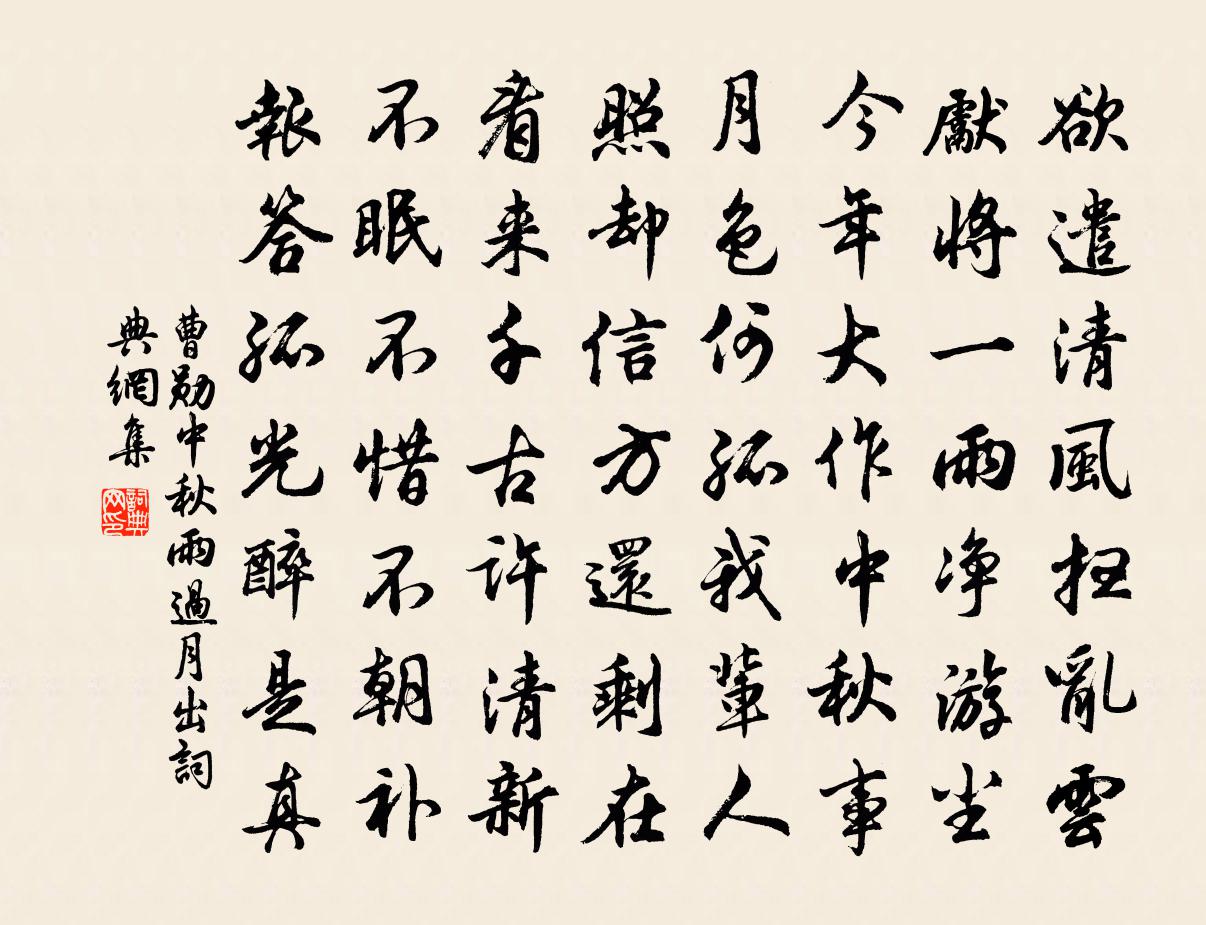 欲遣清風扫亂雲
獻將一雨净游尘
今年大作中秋事
月色何孤我輩人
照却信方還剩在
看来千古許清新
不眠不惜不朝补
報答孤光醉是真
曹勛中秋雨過月出詞
典網集
詞典
网印